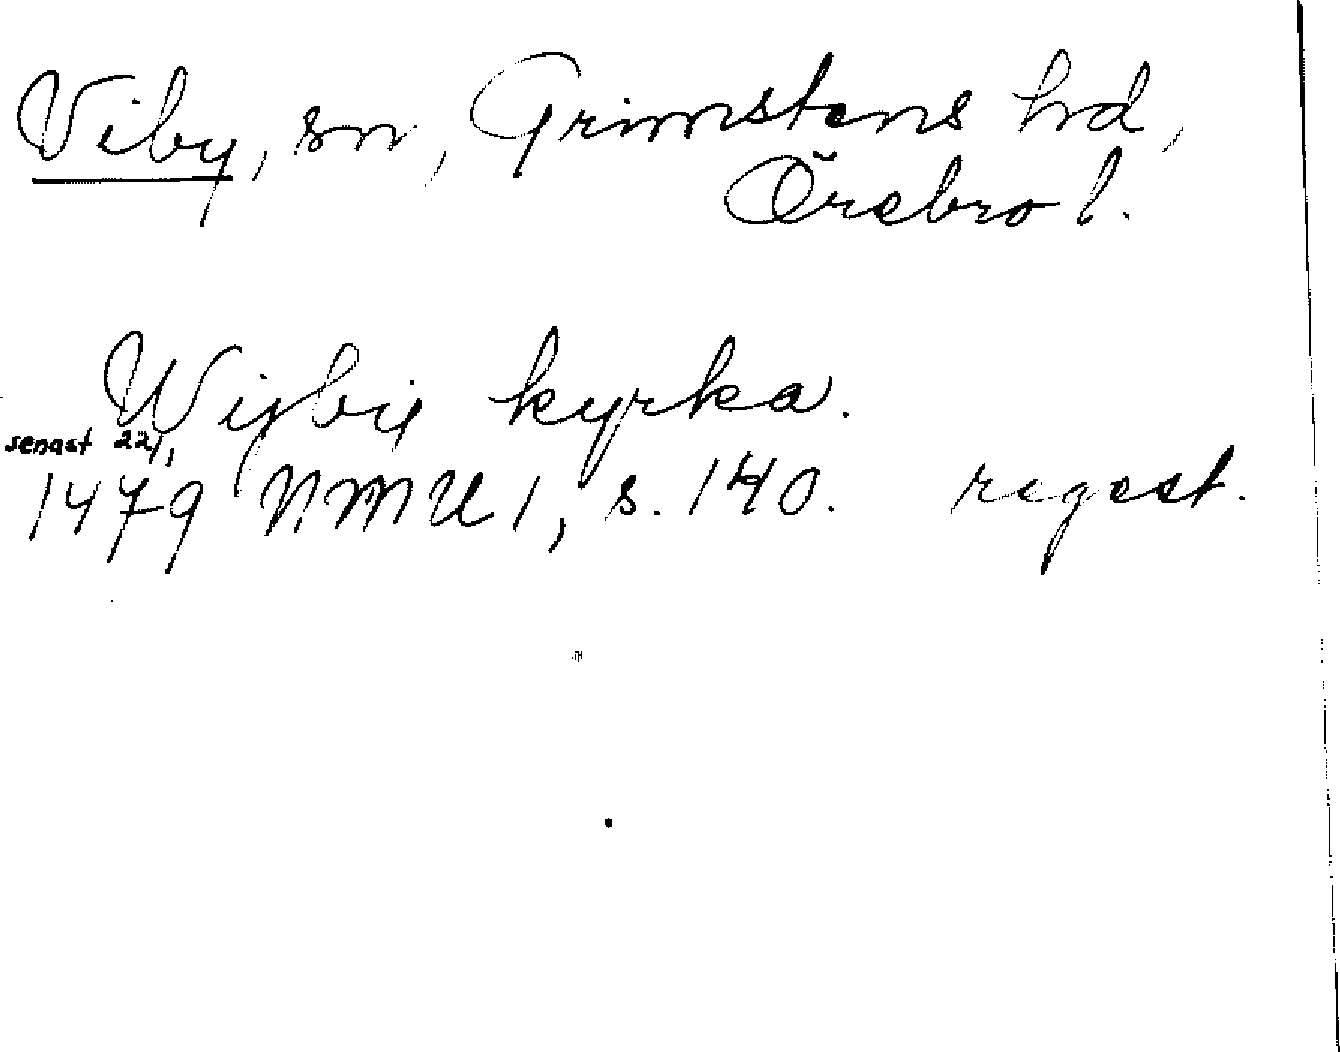 Viby, sn, Grimstens hd,
Örebro l.
Wijbij kyrka.
senast 22/1
1479 NMU 1, s. 140. regest.